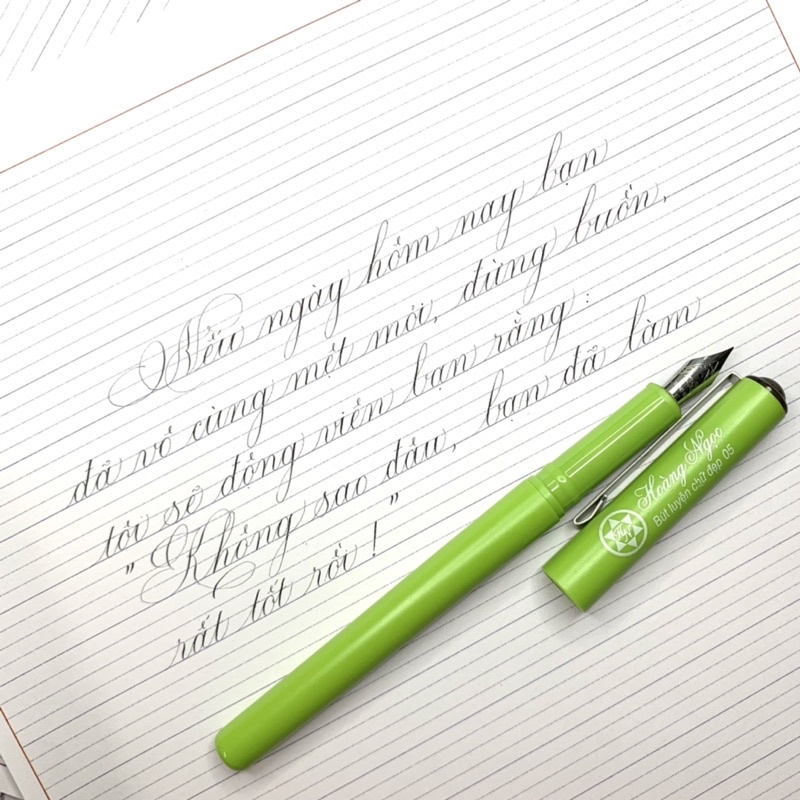 Nếu ngày hôm nay bạn
đã vô cùng mệt mỏi, đừng buồn,
tôi sẽ động viên bạn rằng :
"Không sao đâu, bạn đã làm
rất tốt rồi ! "
Hoàng Ngọc
Bút luyện chữ đẹp 05